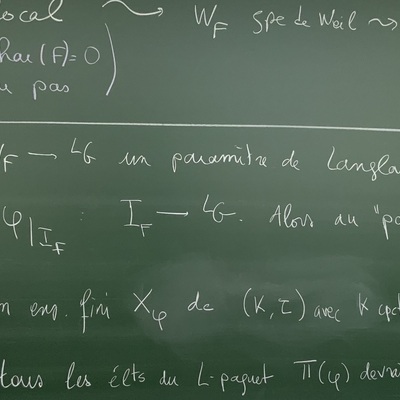 local ⟿ W_F gpe de Weil ⟿
char(F)=0
ou pas
W_F → ᴸG un paramètre de Langla
φ|_{I_F} : I_F → ᴸG. Alors au "pa
un ens. fini X_φ de (K, τ) avec K cpct
tous les élts du L-paquet Π(φ) devrai